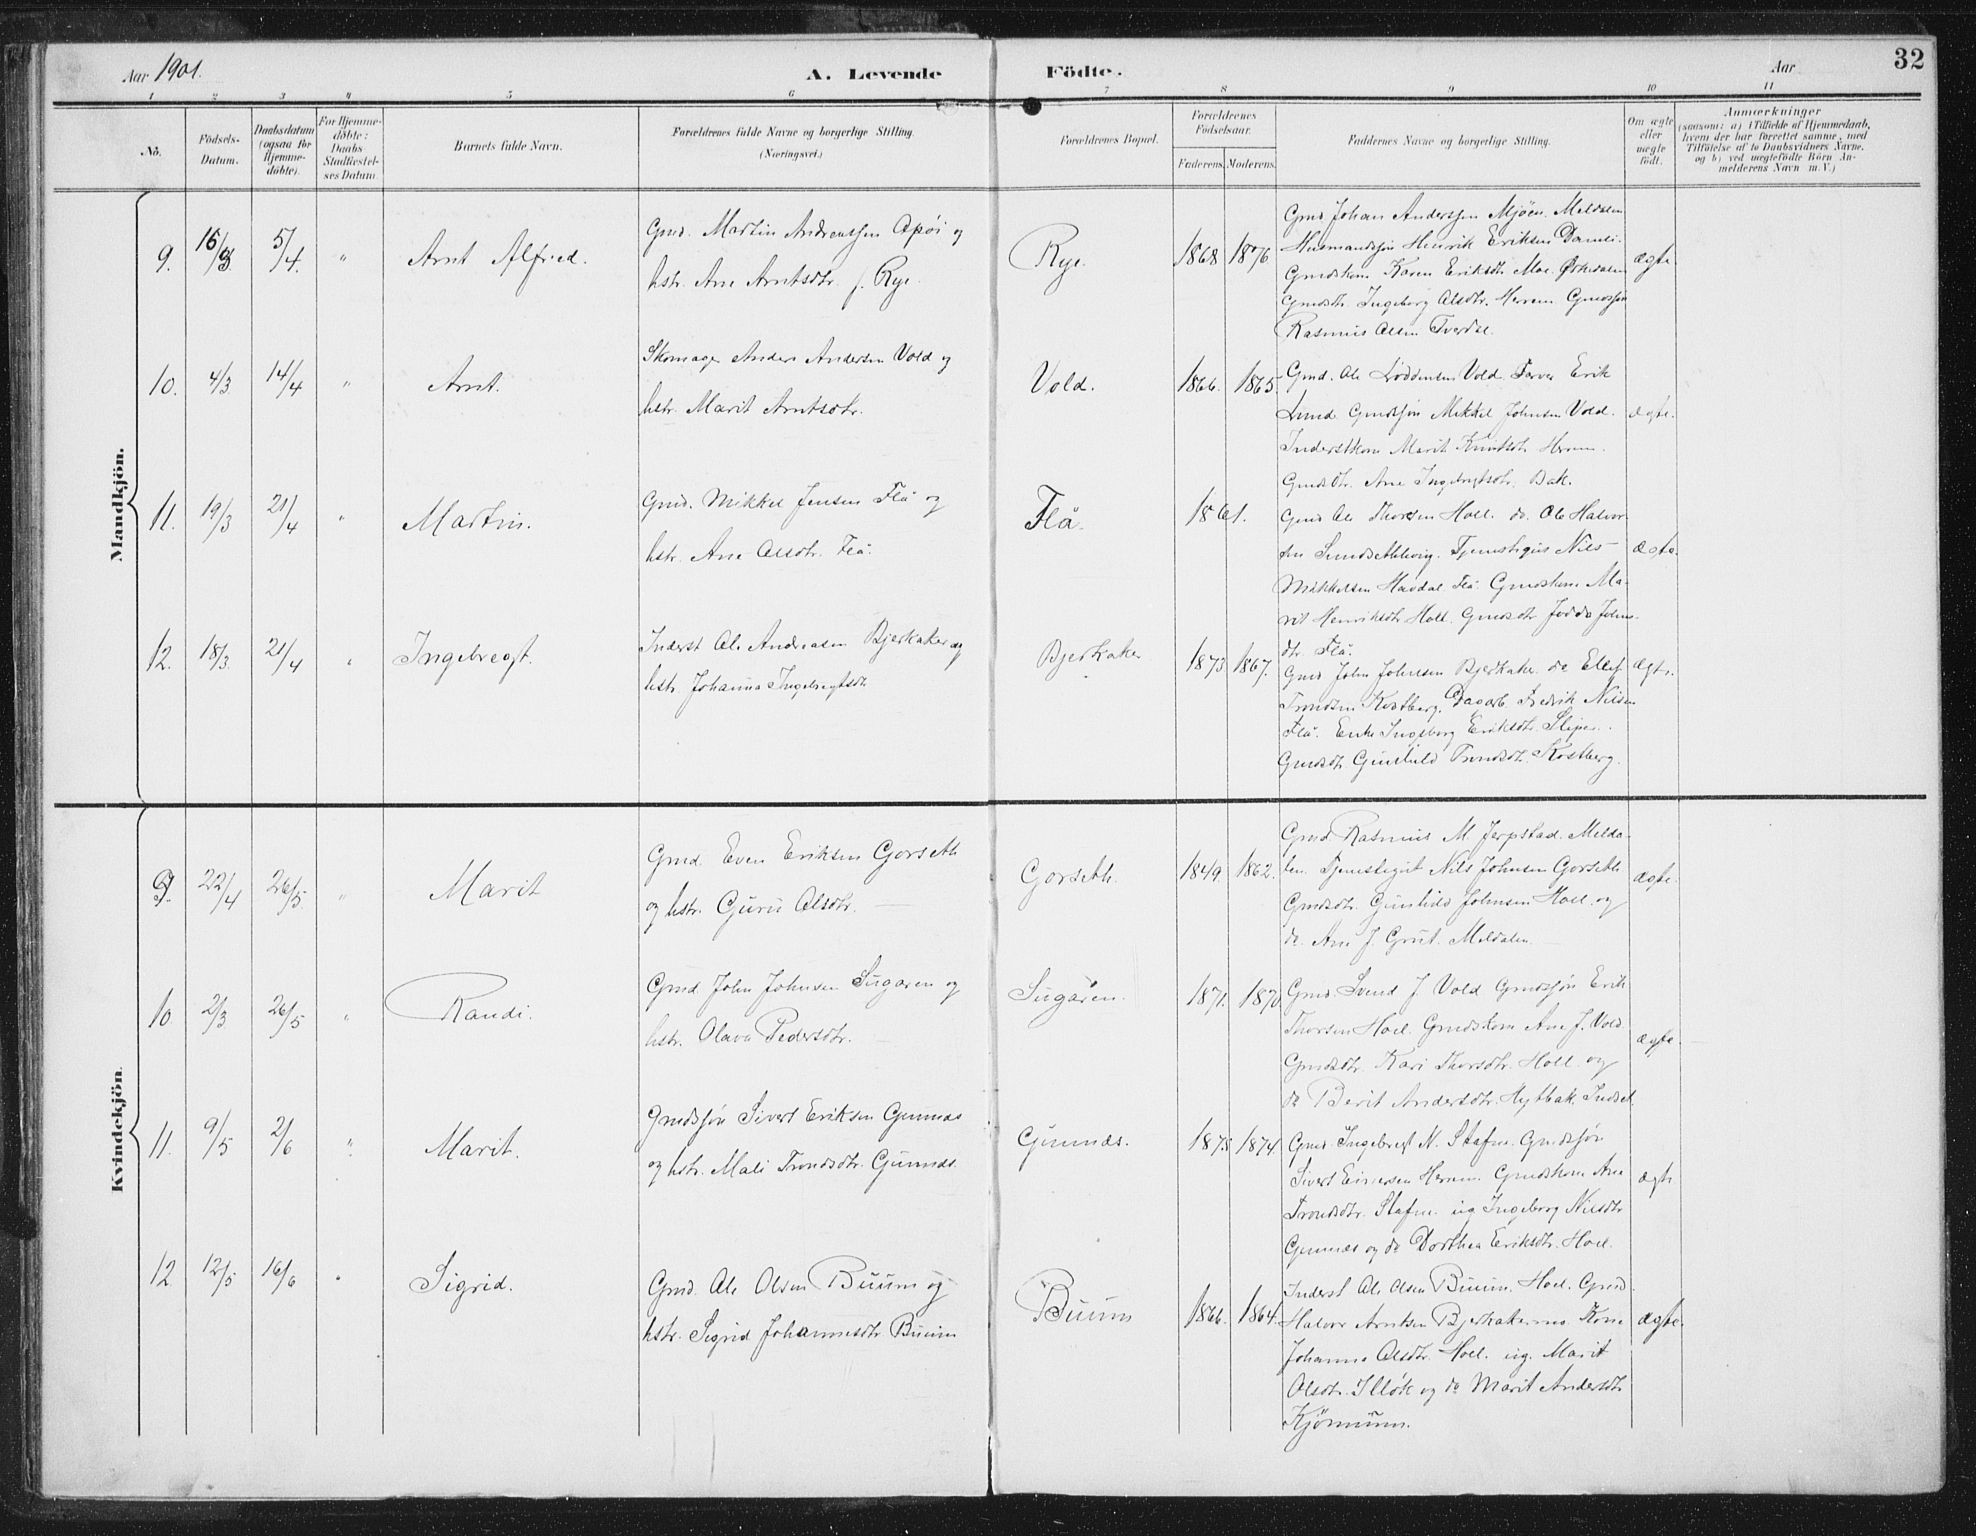 Aar 1901.
A. Levende Födte.
Aar
32
1 2 3 4 5 6 7 8 9 10 11
No.
Födsels-
Datum.
Daabsdatum
(ogsaa for
Hjemme-
döbte).
For Hjemme-
döbte:
Daabs-
Stadfæstel-
ses Datum.
Barnets fulde Navn.
Forældrenes fulde Navne og borgerlige Stilling.
(Næringsvei.)
Forældrenes Bopæl.
Forældrenes
Födselsaar.
Faderens. Moderens.
Faddernes Navne og borgerlige Stilling.
Om ægte
eller
uægte
födt.
Anmærkninger
(saasom: a) i Tilfælde af Hjemmedaab,
hvem der har forrettet samme, med
Tilföielse af to Daabsvidners Navne,
og b) ved uægtefödte Börn An-
melderens Navn m. V.)
Mandkjön.
9. 15/3 5/4. " Arnt Alfred.
Gmd. Martin Andreassen Apöi og
hstr. Ane Arntsdtr. f. Rye.
Rye. 1868 1876
Gmd. Johan Anderssen Mjöen. Meldalen
Husmandssön Henrik Eriksen
Gmdskone Karen Eriksdtr. Moe. Ørkedalen
Gmdsdtr. Ingeborg Olsdtr. Herrem Gmdssön
Rasmus Olsen
ægte.
10. 4/3 14/4 " Arnt.
Skomager Anders Andersen Vold og
hstr. Marit Arntsdtr.
Vold. 1866. 1865.
Gmd. Ole Vold. Farver Erik
Lund. Gmdssön Mikkel Johnsen Vold.
Inderstkone Marit Knutsdtr. Herrem.
Gmdsdtr. Ane Ingebrigtsdtr. Bak.
ægte.
11. 19/3 21/4 " Martin.
Gmd. Mikkel Jensen Flå og
hstr. Ane Olsdtr. Flå.
Flå. 1861.
Gmd Ole Thorsen Hoel. do. Ole Halvor-
sen Sundsethhoug. Tjenestegut Nils
Mikkelsen Havdal Flå. Gmdskone Ma-
rit Henriksdtr Hoel. Gmdsdtr Johns-
dtr. Flå.
ægte.
12. 18/3 21/4 " Ingebregt.
Inderst Ole Andreasen Bjerkaker og
hstr. Johanna Ingebregtsdtr
Bjerkaker 1873 1867.
Gmd John Johnsen Bjerkaker. do Ellef
Trondsen Kostberg. Dagarb. Fredrik Nilsen
Flå. Enke Ingeborg Eriksdtr. Sliper.
Gmdsdtr. Gunhild Trondsdtr. Kostberg.
ægte.
Kvindekjön.
9. 22/4 26/5 " Marit
Gmd. Even Eriksen Gorseth
og hstr. Guru Olsdtr.
Gorseth. 1849. 1862.
Gmd. Rasmus M. Jerpstad. Melda-
len. Tjenestegut Nils Johnsen Gorseth
Gmdsdtr. Gunhild Johnsen Hoel. og
do. Ane J. Grut. Meldalen.
ægte.
10. 2/3 26/5 " Randi.
Gmd. John Johnsen Sugaren og
hstr. Olava Pedersdtr.
Sugaren. 1871. 1870
Gmd. Svend J. Vold Gmdssön Erik
Thorsen Hoel. Gmdskone Ane J. Vold.
Gmdsdtr. Kari Thorsdtr. Hoel. og
do Berit Andersdtr. Hytbak. Indset.
ægte.
11. 9/5 2/6 " Marit.
Gmdssön Sivert Eriksen Gunnæs
og hstr. Mali Trondsdtr. Gunnæs.
Gunnæs. 1875 1874.
Gmd. Ingebregt N. Stafne. Gmdssön
Sivert Einersen Herrem. Gmdskone Ane
Trondsdtr. Stafne. ug Ingeborg Nilsdtr
Gunnæs og do Dorthea Eriksdtr. Hoel.
ægte
12. 12/5 16/6 " Sigrid.
Gmd. Ole Olsen Buum og
hstr. Sigrid Johannesdtr. Buum
Buum 1866. 1864.
Inderst Ole Olsen Buum. Hoel. Gmd.
Halvor Arntsen Bjerkakermo. Kone
Johanna Olsdtr. Hoel. ug. Marit
Olsdtr. Illök og do Marit Andersdtr
ægte.